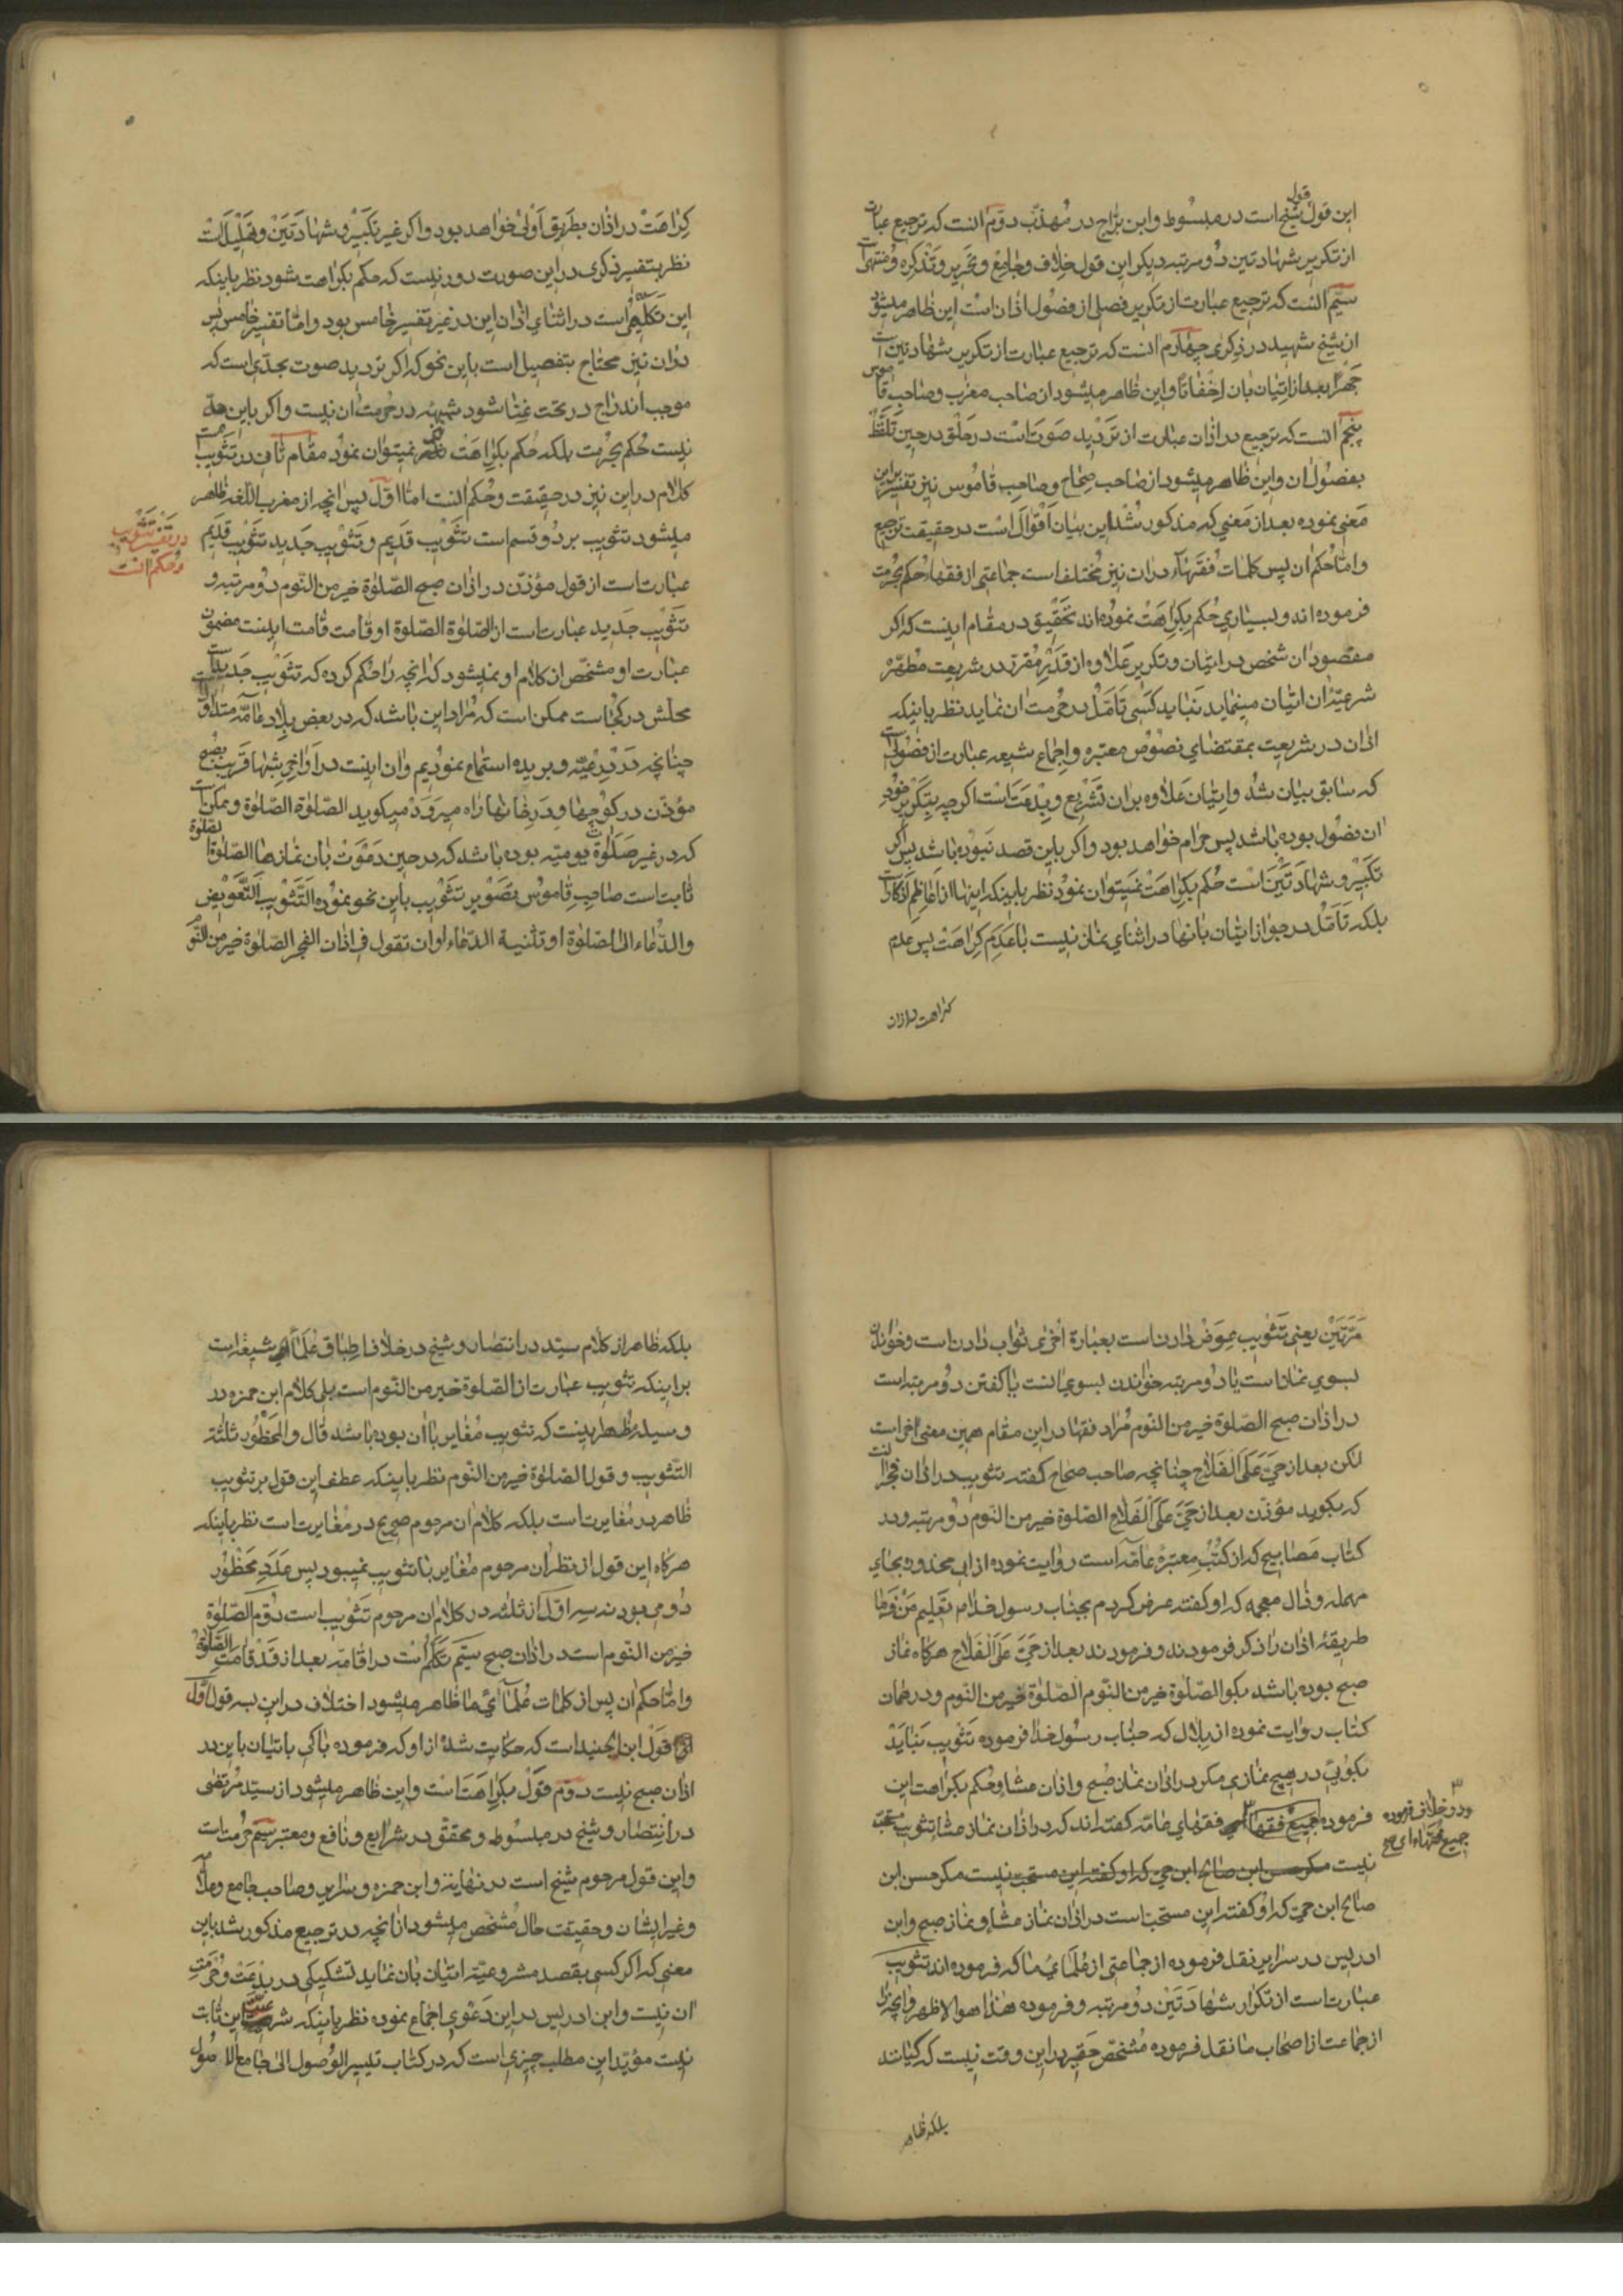 این قول قول شیخ است در مبسوط و ابن براج در مهذب دوم انست که ترجیع عبارت
از تکریر شهادتین دو مرتبه دیکر این قول خلاف و جامع و تحریر و تذکره و منتهی است
سیم انست که ترجیع عبارت از تکریر فصلی از فصول اذان است این ظاهر میشود
از شیخ شهید در ذکری چهارم انست که ترجیع عبارت از تکریر شهادتین است
جهرا بعد از اتیان بان اخفاتا و این ظاهر میشود از صاحب مغرب و صاحب قاموس
پنجم انست که ترجیع در اذان عبارت از تردید صوت است در حلق در حین تلفظ
بفصول ان و این ظاهر میشود از صاحب صحاح و صاحب قاموس نیز تفسیر باین
معنی نموده بعد از معنی که مذکور شد این بیان اقوال است در حقیقت ترجیع
و اما حکم ان پس کلمات فقهاء در ان نیز مختلف است جماعتی از فقها حکم بحرمت
فرموده اند و بسیاری حکم بکراهت نموده اند تحقیق در مقام اینست که اکر
مقصود ان شخص در اتیان و تکریر علاوه از قدر مقرر در شریعت مطهره
شرعیت ان اتیان مینماید نباید کسی تامل در حرمت ان نماید نظر باینکه
اذان در شریعت بمقتضای نصوص معتبره و اجماع شیعه عبارت از فصولی است
که سابق بیان شد و اتیان علاوه بر ان تشریع و بدعت است اکرچه بتکریر خود
ان فصول بوده باشد پس حرام خواهد بود و اکر باین قصد نبوده باشد پس اکر
تکبیر و شهادتین است حکم بکراهت نمیتوان نمود نظر باینکه اینها از اعاظم اذکار است
بلکه تامل در جواز اتیان بانها در اثنای نماز نیست با عدم کراهت پس عدم
کراهت در اذان
کراهت در اذان بطریق اولی خواهد بود و اکر غیر تکبیر و شهادتین و تهلیل است
نظر بتفسیر ذکری در این صورت دور نیست که حکم بکراهت شود نظر باینکه
این تکلم است در اثنای اذان این در غیر تفسیر خامس بود و اما تفسیر خامس پس
در ان نیز محتاج بتفصیل است باین نحو که اکر تردید صوت بحدی است که
موجب اندراج در تحت غنا شود شبهه در حرمت ان نیست و اکر باین حد
نیست حکم بحرمت بلکه حکم بکراهت هم نمیتوان نمود مقام ثانی در تثویب است
کلام در این نیز در حقیقت و حکم انست اما اول پس انچه از مغرب اللغه ظاهر
میشود تثویب بر دو قسم است تثویب قدیم و تثویب جدید تثویب قدیم
در تفسیر تثویب
و حکم انست
عبارت است از قول مؤذن در اذان صبح الصلوة خیر من النوم دو مرتبه و
تثویب جدید عبارت است از الصلوة الصلوة او قامت قامت اینست مضمون
عبارت او و مشخص از کلام او نمیشود که انچه را حکم کرده که تثویب جدید است
محلش در کجا است ممکن است که مراد این باشد که در بعض بلاد عامه متداول است
چنانچه در درعیه و بریده استماع نمودیم و ان اینست در اواخر شبها قریب بصبح
مؤذن در کوچها و در خانها راه میرود میکوید الصلوة الصلوة و ممکن است
که در غیر صلوات یومیه بوده باشد که در حین دعوت بان نمازها الصلوة الصلوة
ثابت است صاحب قاموس تصویر تثویب باین نحو نموده التثویب التعویض
و الدعاء الی الصلوة او تثنیة الدعاء او ان تقول فی اذان الفجر الصلوة خیر من النوم
مرتین یعنی تثویب عوض دادن است بعبارة اخری ثواب دادن است و خواندن
بسوی نماز است یا دو مرتبه خواندن بسوی انست یا کفتن دو مرتبه است
در اذان صبح الصلوة خیر من النوم مراد فقها در این مقام همین معنی اخر است
لکن بعد از حی علی الفلاح چنانچه صاحب صحاح کفته تثویب در اذان فجر انست
که بکوید مؤذن بعد از حی علی الفلاح الصلوة خیر من النوم دو مرتبه و در
کتاب مصابیح که از کتب معتبرۀ عامه است روایت نموده از ابی محذوره بحای
مهمله و ذال معجمه که او کفته عرض کردم بجناب رسول خدا م تعلیم من فرما
طریقۀ اذان را ذکر فرمودند و فرمودند بعد از حی علی الفلاح هرکاه نماز
صبح بوده باشد بکو الصلوة خیر من النوم الصلوة خیر من النوم و در همان
کتاب روایت نموده از بلال که جناب رسول خدا فرموده تثویب نباید
بکوئی در هیچ نمازی مکر در اذان نماز صبح و اذان عشا و حکم بکراهت این
فرموده جمیع فقها فقهای عامه کفته اند که در اذان نماز عشا تثویب مستحب
و در خلاف فرموده
جمیع فقهاء
نیست مکر حسن ابن صالح ابن حی که او کفته این مستحب نیست مکر حسن ابن
صالح ابن حی که او کفته این مستحب است در اذان نماز عشا و نماز صبح و ابن
ادریس در سرایر نقل فرموده از جماعتی از علمای ما که فرموده اند تثویب
عبارت است از تکرار شهادتین دو مرتبه و فرموده هذا هو الاظهر و انچه را
از جماعت از اصحاب ما نقل فرموده مشخص حقیر در این وقت نیست که کیانند
بلکه ظاهر
بلکه ظاهر از کلام سید در انتصار و شیخ در خلاف اطباق علماء شیعه است
بر اینکه تثویب عبارت از الصلوة خیر من النوم است بلی کلام ابن حمزه در
وسیله مظهر اینست که تثویب مغایر با ان بوده باشد قال و المحظور ثلثة
التثویب و قول الصلوة خیر من النوم نظر باینکه عطف این قول بر تثویب
ظاهر در مغایرت است بلکه کلام ان مرحوم صریح در مغایرت است نظر باینکه
هرکاه این قول از نظر ان مرحوم مغایر با تثویب نمیبود پس عدد محظور
دو می بود نه سه اول از ثلثه در کلام ان مرحوم تثویب است دوم الصلوة
خیر من النوم است در اذان صبح سیم تکلم است در اقامه بعد از قد قامت الصلوة
و اما حکم ان پس از کلمات علمای ما ظاهر میشود اختلاف در این بسه قول اول
قول ابن الجنید است که حکایت شده از او که فرموده باکی باتیان باین در
اذان صبح نیست دوم قول بکراهت است و این ظاهر میشود از سید مرتضی
در انتصار و شیخ در مبسوط و محقق در شرایع و نافع و معتبر سیم حرمت است
و این قول مرحوم شیخ است در نهایة و ابن حمزه و سرایر و صاحب جامع و علامه
و غیر ایشان و حقیقت حال مشخص میشود از انچه در ترجیع مذکور شد باین
معنی که اکر کسی بقصد مشروعیة اتیان بان نماید تشکیکی در بدعت و حرمت
ان نیست و ابن ادریس در این دعوی اجماع نموده نظر باینکه شرعیت این ثابت
نیست مؤید این مطلب چیزی است که در کتاب تیسیر الوصول الی جامع الاصول